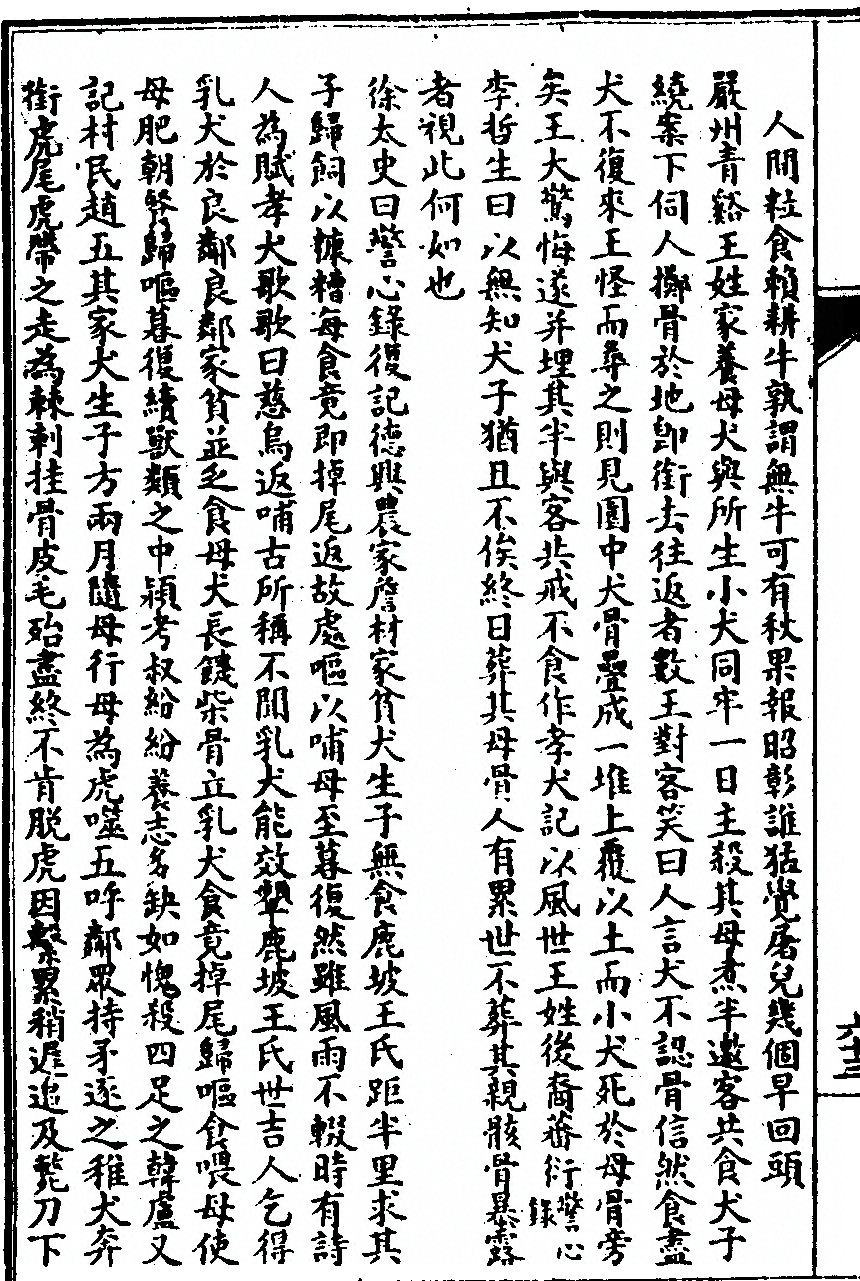 人間粒食賴耕牛孰謂無牛可有秋果報昭彰誰猛覺屠兒幾個早回頭
嚴州青谿王姓家養母犬與所生小犬同牢一日主殺其母煮半邀客共食犬子
繞案下伺人擲骨於地卽銜去往返者數王對客笑曰人言犬不認骨信然食盡
犬不復來王怪而尋之則見園中犬骨疊成一堆上覆以土而小犬死於母骨旁
矣王大驚悔遂并埋其半與客共戒不食作孝犬記以風世王姓後裔蕃衍警心錄
李哲生曰以無知犬子猶且不俟終日葬其母骨人有累世不葬其親骸骨暴露
者視此何如也
徐太史曰警心錄復記德興農家詹材家貧犬生子無食鹿坡王氏距半里求其
子歸飼以糠糟每食竟即掉尾返故處嘔以哺母至暮復然雖風雨不輟時有詩
人為賦孝犬歌歌曰慈烏返哺古所稱不聞乳犬能效顰鹿坡王氏世吉人乞得
乳犬於良鄰良鄰家貧並乏食母犬長饑柴骨立乳犬食竟掉尾歸嘔食喂母使
母肥朝嘔歸嘔暮復續獸類之中潁考叔紛紛養志多缺如愧殺四足之韓盧又
記村民趙五其家犬生子方兩月隨母行母為虎噬五呼鄰眾持矛逐之稚犬奔
銜虎尾虎帶之走為棘刺挂骨皮毛殆盡終不肯脫虎因繫累稍遲追及斃刀下
六十三